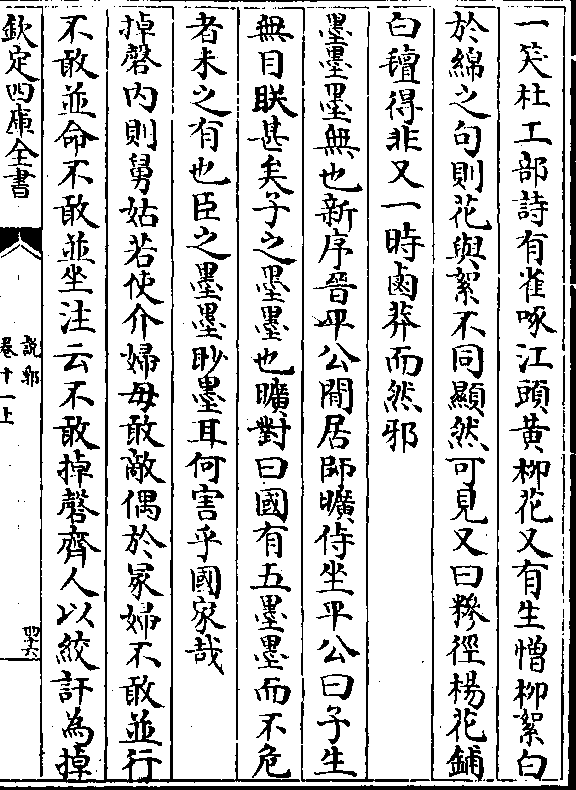 一笑杜工部詩有雀啄江頭黄柳花又有生憎柳絮白
於綿之句則花與絮不同顯然可見又曰糝徑楊花鋪
白氊得非又一時鹵莽而然邪
墨墨墨無也新序晉平公閒居師曠侍坐平公曰子生
無目眹甚矣子之墨墨也曠對曰國有五墨墨而不危
者未之有也臣之墨墨眇墨耳何害乎國家哉
掉磬内則舅姑若使介婦毋敢敵偶於冢婦不敢並行
不敢並命不敢並坐注云不敢掉磬齊人以絞訐為掉
欽定四庫全書
說郛
卷十一上
四六